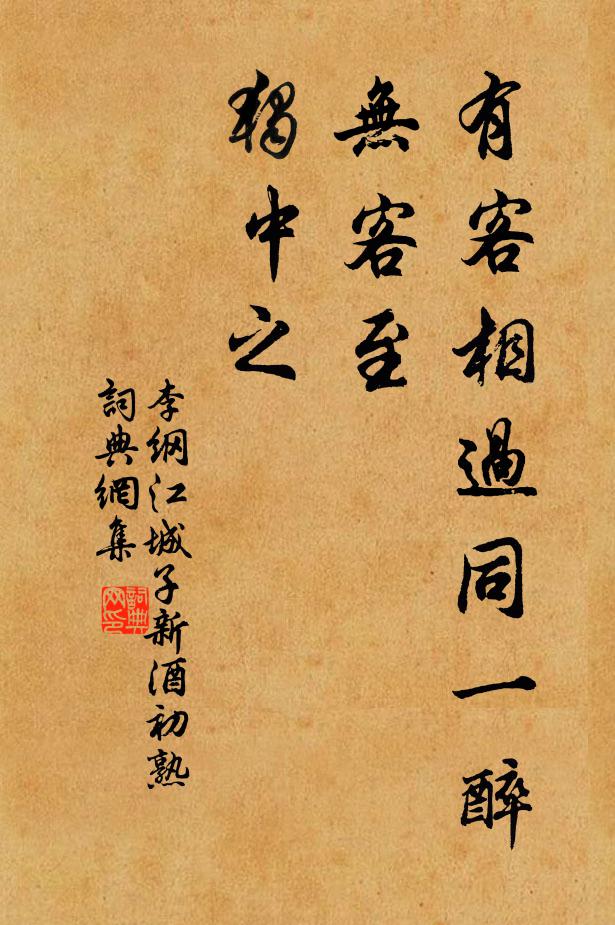 有客相過同一醉
無客至
獨中之
李綱江城子新酒初熟
詞典網集
詞典網印